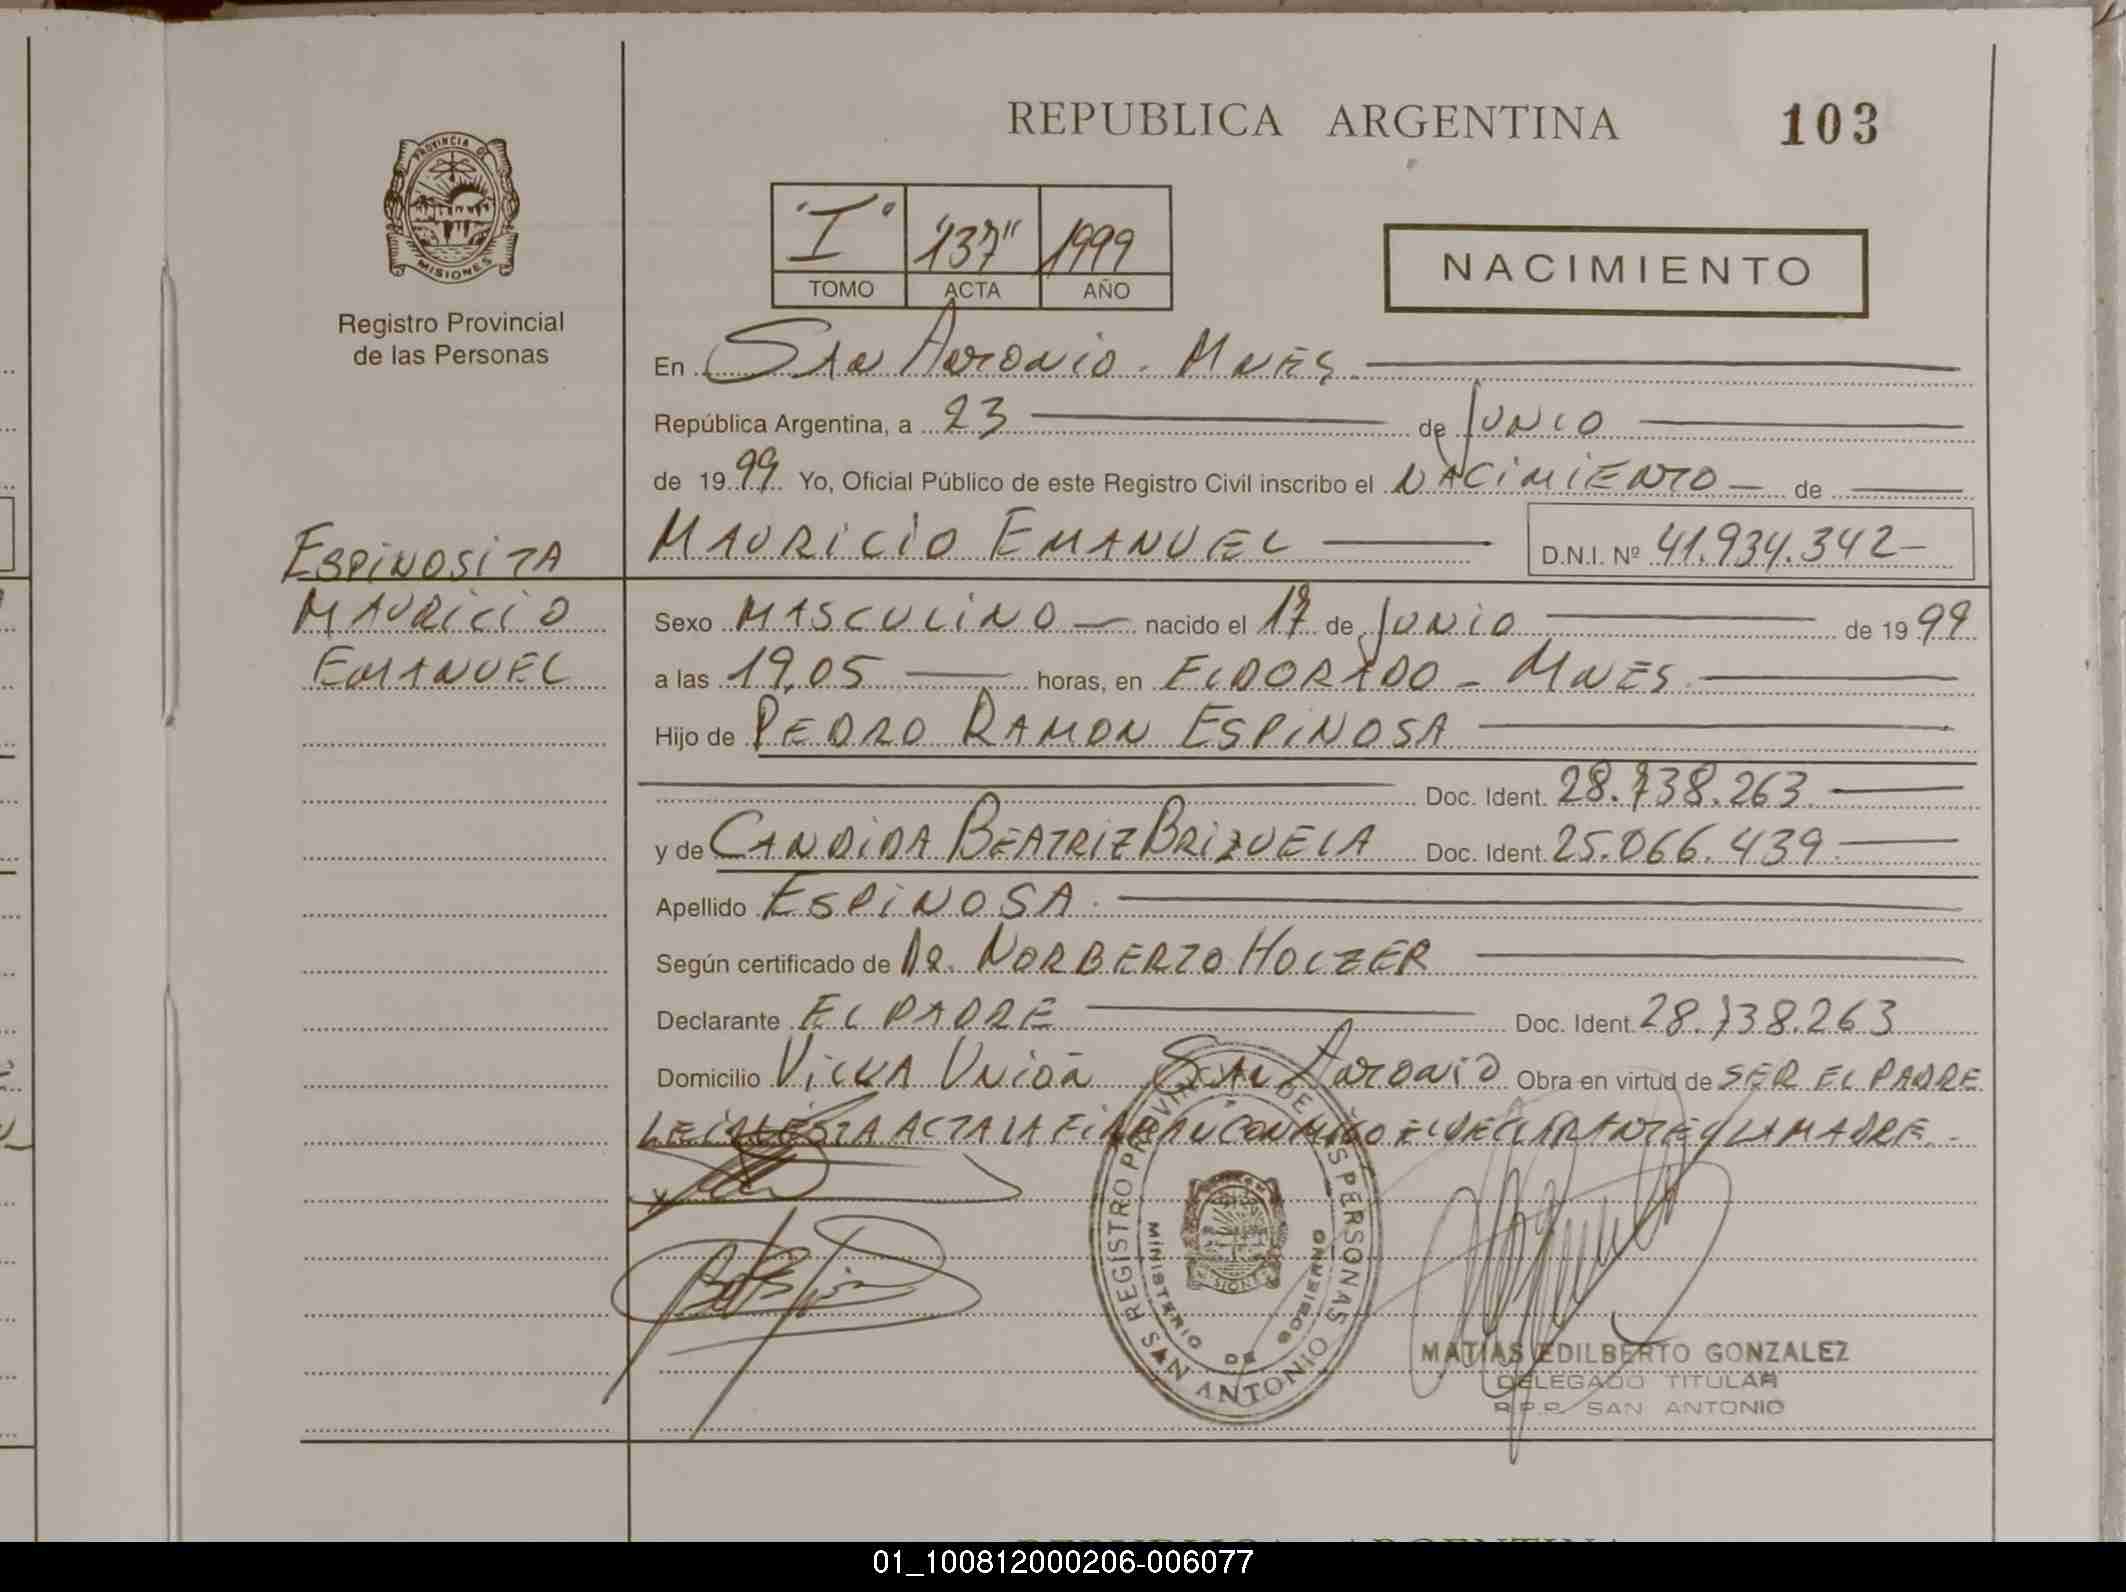 REPUBLICA ARGENTINA
103
PROVINCIA DE
MISIONES
Registro Provincial
de las Personas
"I" "137" 1999
TOMO ACTA AÑO
NACIMIENTO
En SAN ANTONIO - MNES.
República Argentina, a 23 de JUNIO
de 1999 Yo, Oficial Público de este Registro Civil inscribo el NACIMIENTO de
MAURICIO EMANUEL D.N.I. Nº 41.934.342-
ESPINOSITA
MAURICIO
EMANUEL
Sexo MASCULINO nacido el 17 de JUNIO de 1999
a las 19,05 horas, en ELDORADO - MNES.
Hijo de PEDRO RAMON ESPINOSA
Doc. Ident. 28.738.263
y de CANDIDA BEATRIZ BRIZUELA Doc. Ident. 25.066.439
Apellido ESPINOSA
Según certificado de DR. NORBERTO HOLZER
Declarante EL PADRE Doc. Ident. 28.738.263
Domicilio VILLA UNION SAN ANTONIO Obra en virtud de SER EL PADRE
LEIDA ESTA ACTA LA FIRMAN CONMIGO EL DECLARANTE Y LA MADRE.-
REGISTRO PROVINCIAL DE LAS PERSONAS
MINISTERIO DE GOBIERNO
MISIONES
SAN ANTONIO
MATIAS EDILBERTO GONZALEZ
DELEGADO TITULAR
R.P.P. SAN ANTONIO
REPUBLICA ARGENTINA
01_100812000206-006077